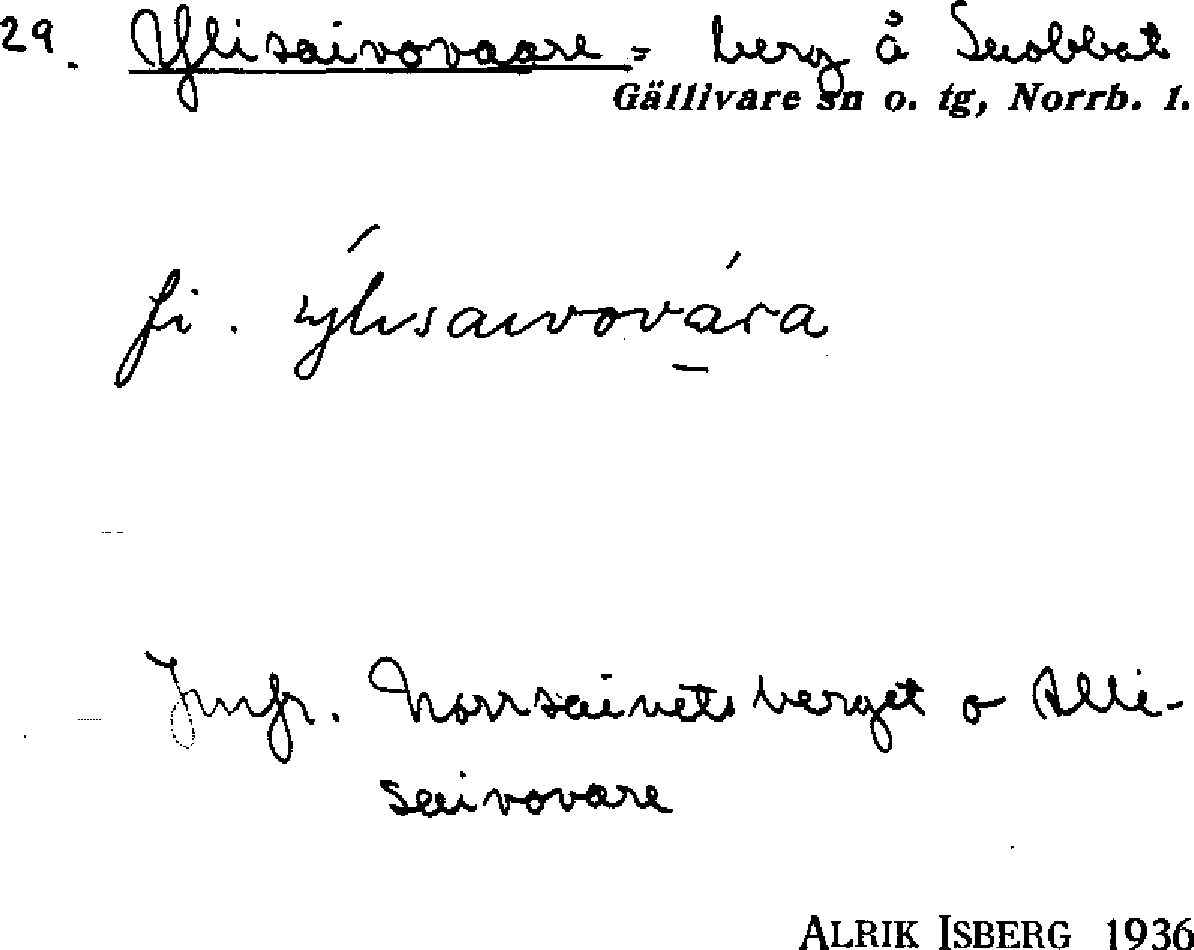 29. Ylisaivovaara = berg å Suobbat
Gällivare sn o. tg, Norrb. l.
fi. ýlisaivovára
Jmfr. Norrsaivetsberget o Alli-
saivovare
ALRIK ISBERG 1936